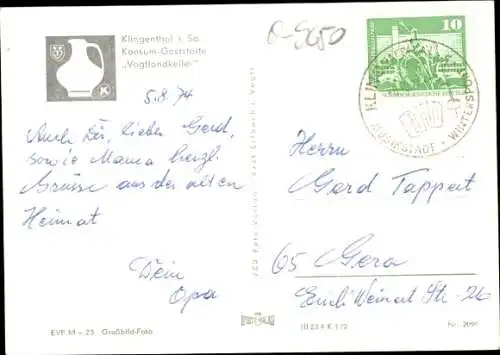 Klingenthal i. Sa.
Konsum-Gaststätte
„Vogtlandkeller"
K
R-5650
10
KLINGENTHAL
MUSIKSTADT · WINTERSPORT
5.8.74
Auch Dir, lieber Gerd,
sowie Mama herzl.
Grüsse aus der alten
Heimat
Dein
Opa
Herrn
Gerd Tappert
65 Gera
Erich Weinert Str. 26
EVP M -.25 Großbild-Foto
III 23 4 K 1 72
Nr. 2091